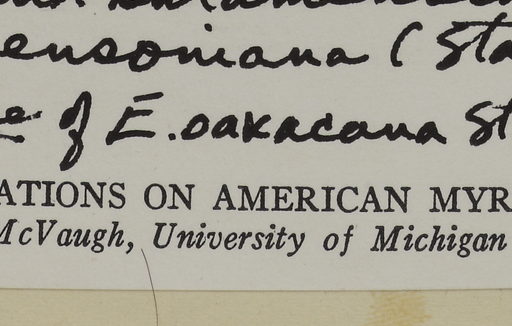 ensoniana (Sta
e of E. oaxacana St
ATIONS ON AMERICAN MYR
McVaugh, University of Michigan